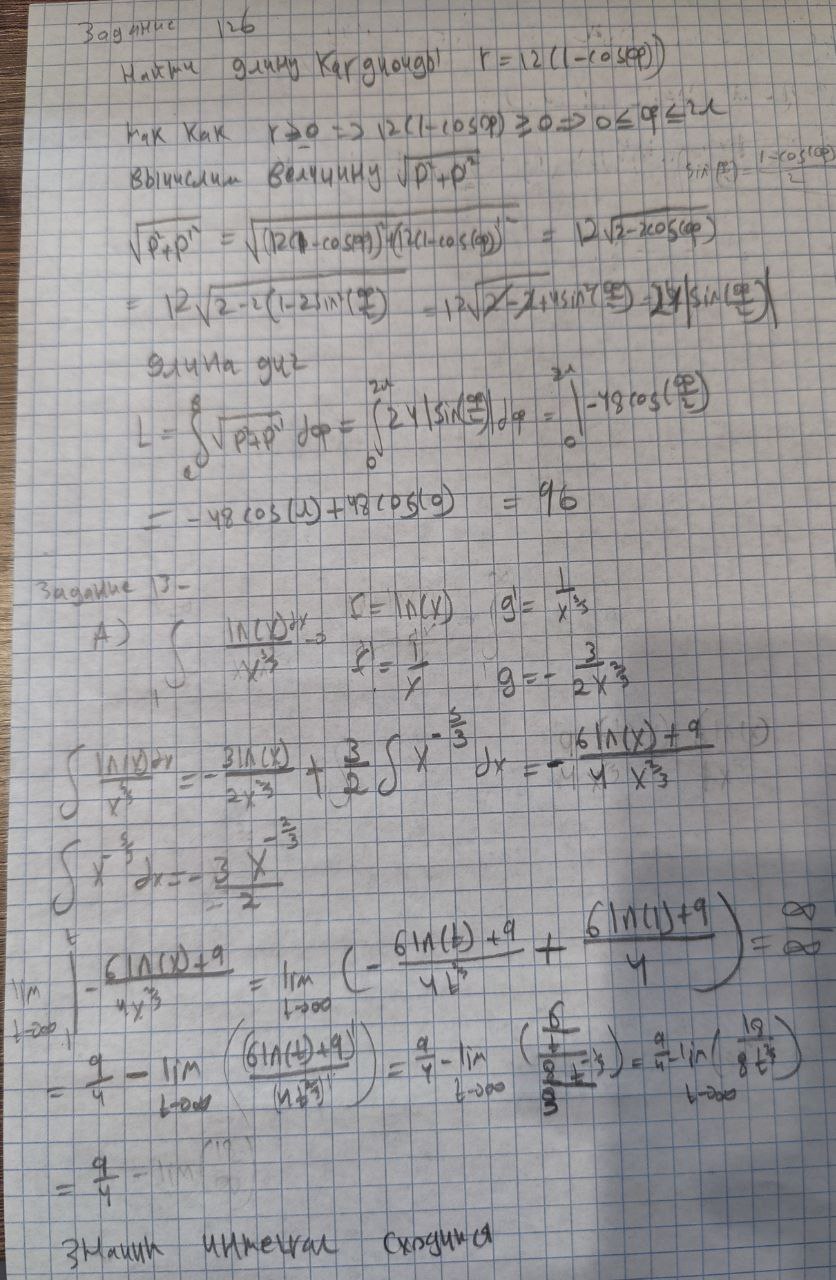 Задание 12б
Найти длину кардиоиды r = 12(1-cos(φ))
так как r ≥ 0 => 12(1-cos φ) ≥ 0 => 0 ≤ φ ≤ 2π
вычислим величину √(p²+p'²)
sin²(φ/2) = (1-cos(φ))/2
√(p²+p'²) = √((12(1-cos(φ)))²+(12(1-cos(φ))')²) = 12√(2-2cos(φ))
= 12√(2-2(1-2sin²(φ/2))) = 12√(2-2+4sin²(φ/2)) = 24|sin(φ/2)|
Длина дуг
L = ∫ √(p²+p'²) dφ = ∫₀^2π 24|sin(φ/2)|dφ = |₀^2π -48cos(φ/2)
= -48cos(π)+48cos(0) = 96
Задание 13-
А) ∫₁ ln(x)dx/x^(5/3) = f = ln(x) g' = 1/x^(5/3)
f' = 1/x g = - 3/(2x^(2/3))
∫ ln(x)dx/x^(5/3) = - 3ln(x)/(2x^(2/3)) + 3/2 ∫ x^(-5/3) dx = - (6ln(x)+9)/(4x^(2/3))
∫ x^(-5/3) dx = - 3x^(-2/3)/2
lim t->∞ |₁^t - (6ln(x)+9)/(4x^(2/3)) = lim t->∞ (- (6ln(t)+9)/(4t^(2/3)) + (6ln(1)+9)/4) = ∞/∞
= 9/4 - lim t->∞ ((6ln(t)+9)'/(4t^(2/3))') = 9/4 - lim t->∞ ((6/t)/(8/3 t^(-1/3))) = 9/4 - lim t->∞ (18/(8t^(2/3)))
= 9/4
Значит интеграл сходится